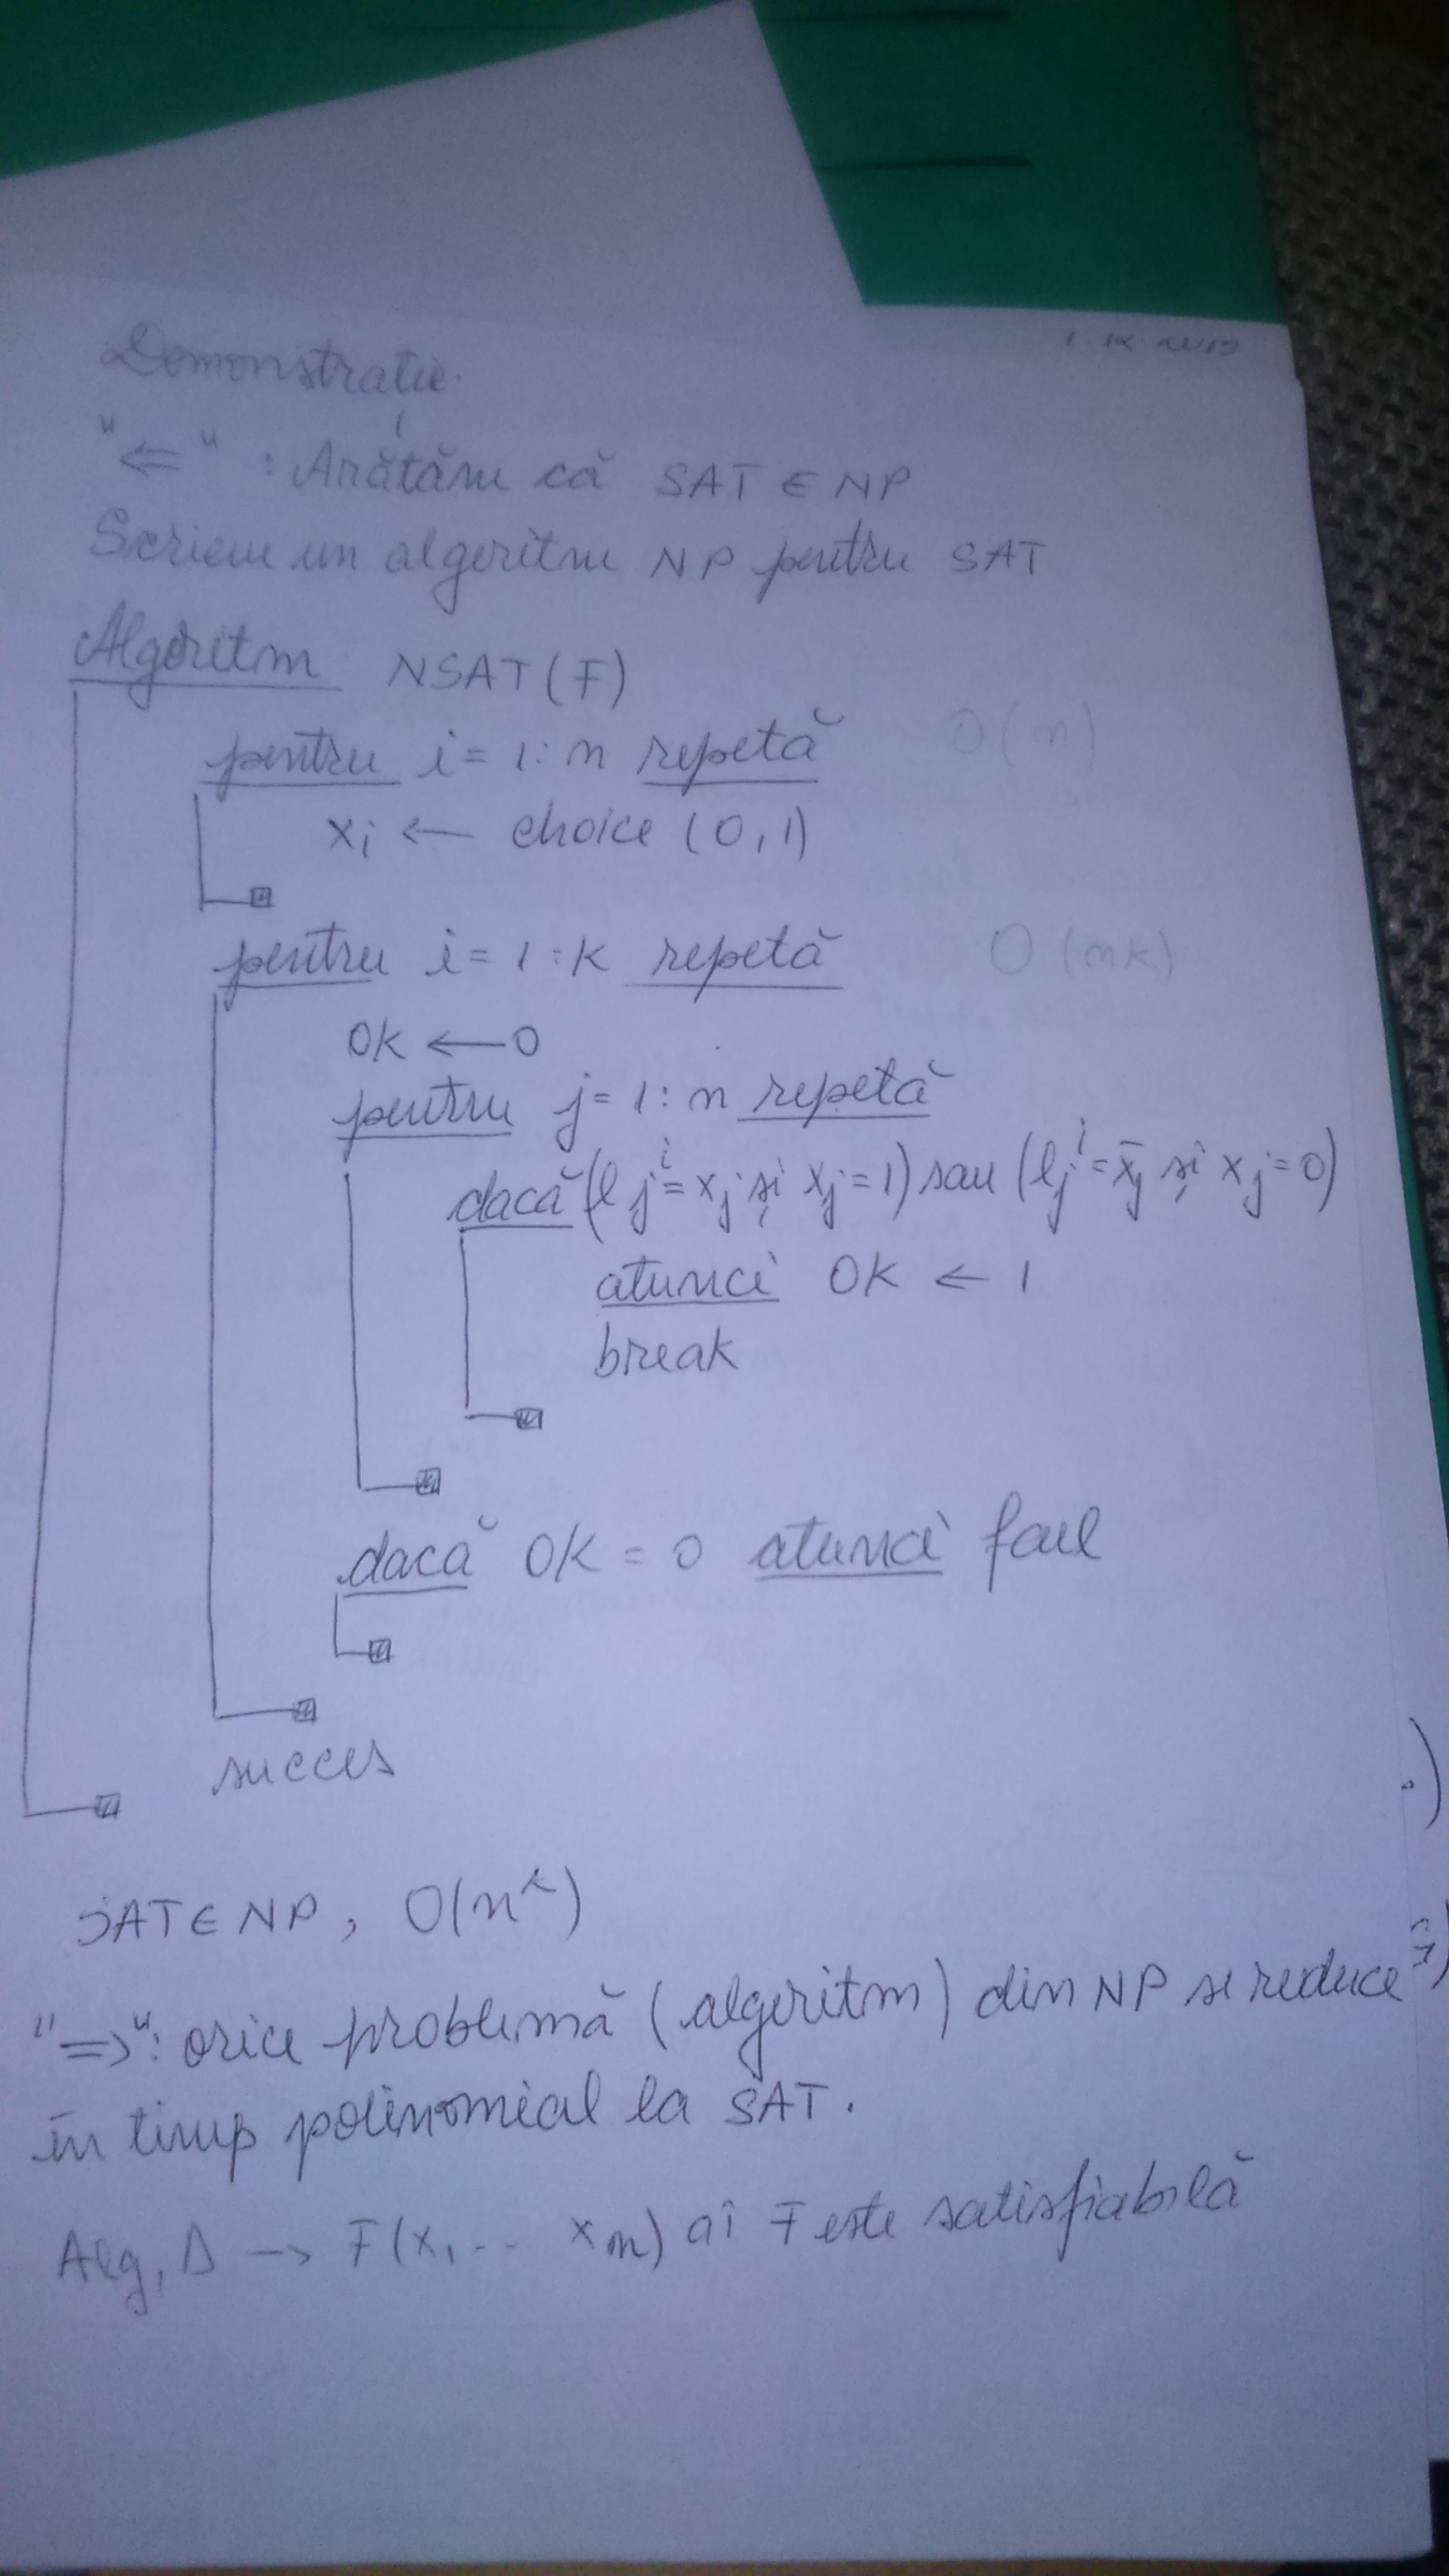 Demonstrație.
"⇐" : Arătăm că SAT ∈ NP
Scriem un algoritm NP pentru SAT
Algoritm NSAT(F)
pentru i = 1 : n repetă O(n)
xi ← choice (0,1)
pentru i = 1 : k repetă O(nk)
OK ← 0
pentru j = 1 : n repetă
dacă (l_j^i = xj și xj = 1) sau (l_j^i = x̄j și xj = 0)
atunci OK ← 1
break
dacă OK = 0 atunci fail
succes
SAT ∈ NP, O(n^k)
"⇒": orice problemă (algoritm) din NP se reduce
în timp polinomial la SAT.
Alg, D → F(x1 .. xn) aî F este satisfiabilă